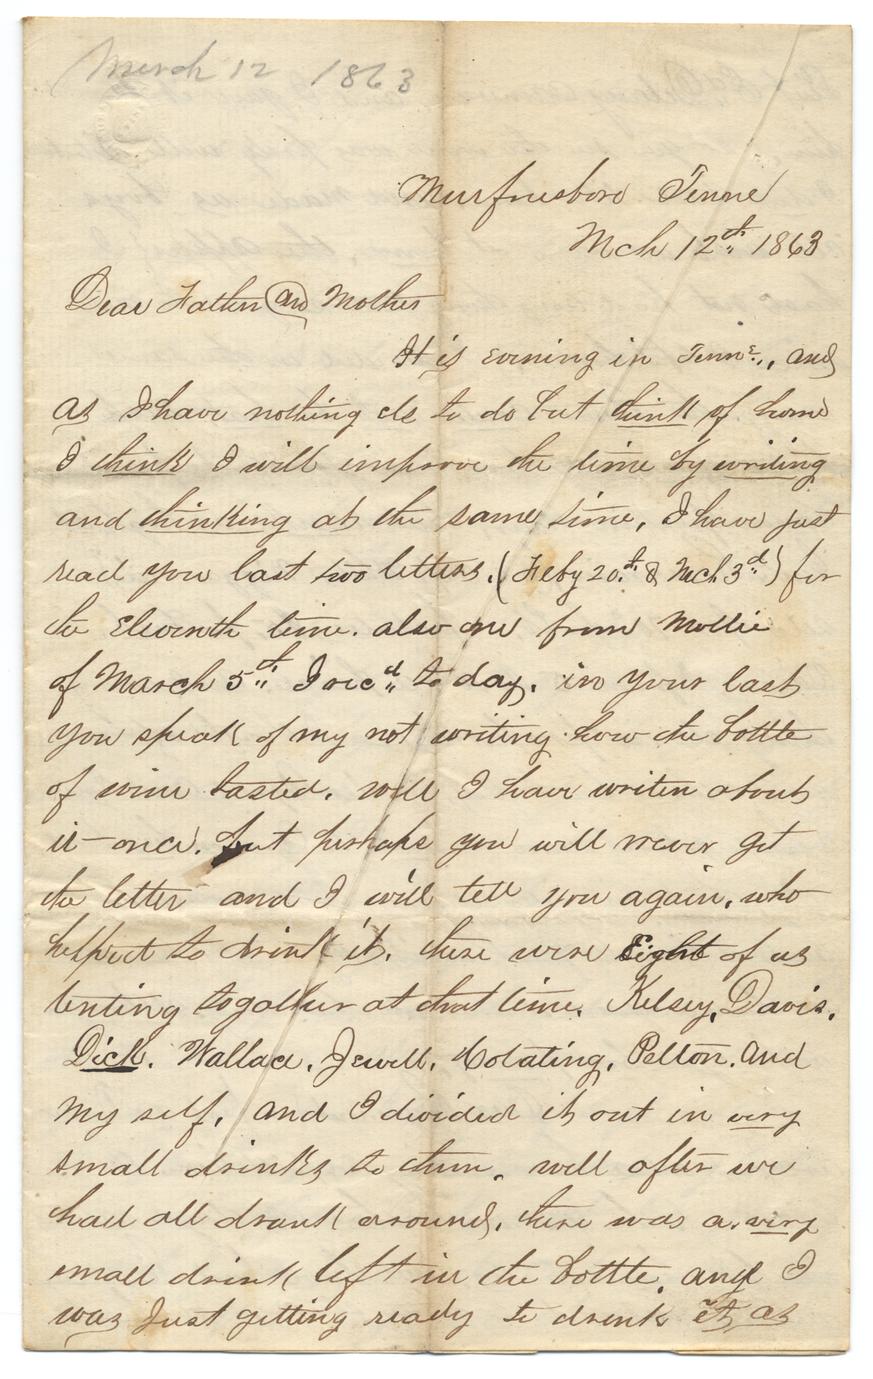 March 12 1863
Murfreesboro Tenne
Mch 12th 1863
Dear Father and Mother
It is evening in Tenne., and
as I have nothing els to do but think of home
I think I will improve the time by writing
and thinking at the same time, I have just
read you last two letters. (Feby 20th & Mch 3d) for
the Eleventh time. also one from Mollie
of March 5th I recd to day. in your last
you speak of my not writing how the bottle
of wine tasted. well I have writen about
it once. but perhaps you will never get
the letter and I will tell you again, who
helped to drink it. there were Eight of us
tenting togather at that time. Kelsey, Davis.
Dick. Wallace. Jewell. Pelton. and
my self. and I divided it out in very
small drinks to them. well after we
had all drank around, there was a very
small drink left in the bottle. and I
was Just getting ready to drink it, as